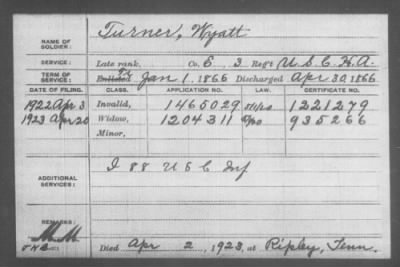 NAME OF SOLDIER: Turner, Wyatt
SERVICE: Late rank, Co. E 3 Reg't U.S.C.H.A.
TERM OF SERVICE: Enlisted Jan 1, 1866 Discharged Apr 30, 1866
DATE OF FILING. CLASS. APPLICATION NO. LAW. CERTIFICATE NO.
1922 Apr 3 Invalid, 1465029 1221279
1923 Apr 20 Widow, 1204311 935266
Minor,
ADDITIONAL SERVICES: I 88 U S C Inf
REMARKS:
Died Apr 2, 1923, at Ripley, Tenn.